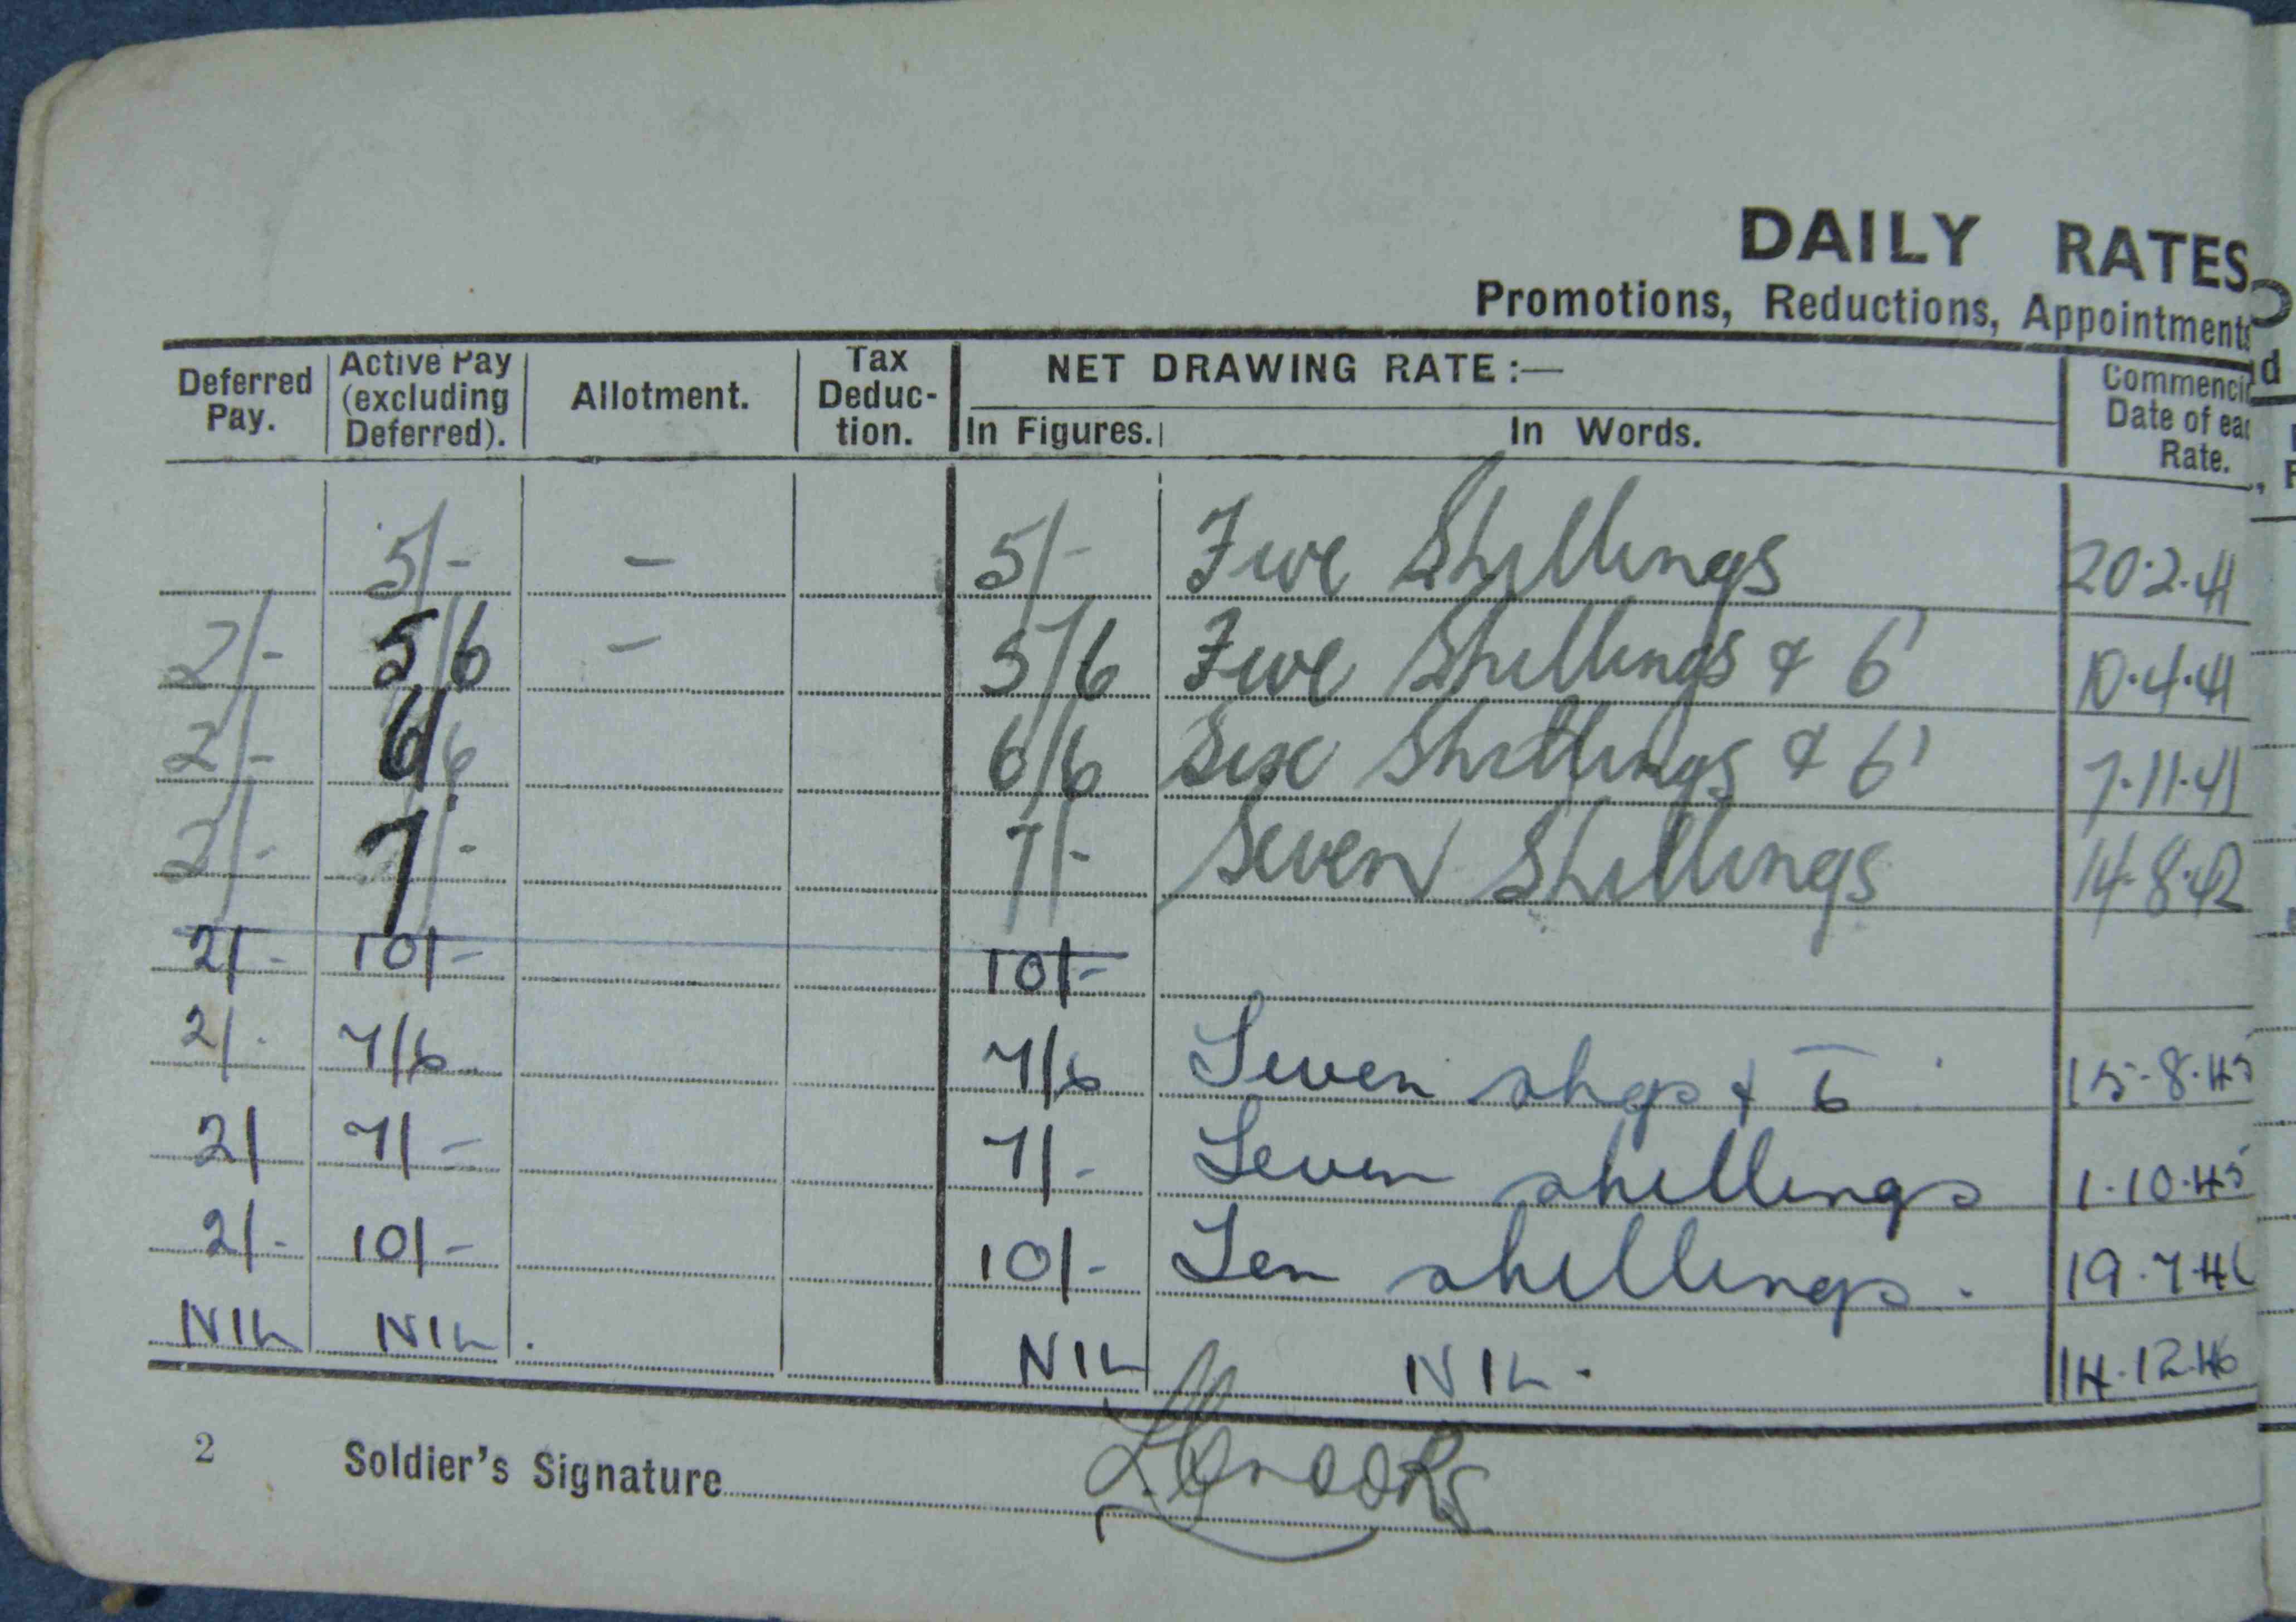 DAILY RATES
Promotions, Reductions, Appointments
Deferred Pay. Active Pay (excluding Deferred). Allotment. Tax Deduc-tion. NET DRAWING RATE :— In Figures. In Words. Date of Rate.
5/- - 5/- Five Shillings 20.2.41
2/- 5/6 - 5/6 Five Shillings & 6' 10.4.41
2/- 6/6 6/6 Six Shillings & 6' 7.11.41
2/- 7/- 7/- Seven Shillings 14.8.42
2/- 10/- 10/-
2/- 7/6 7/6 Seven shgs & 6 15.8.45
2/ 7/- 7/- Seven shillings 1.10.45
2/- 10/- 10/- Ten shillings. 19.7.46
NIL NIL. NIL NIL. 14.12.46
2 Soldier's Signature